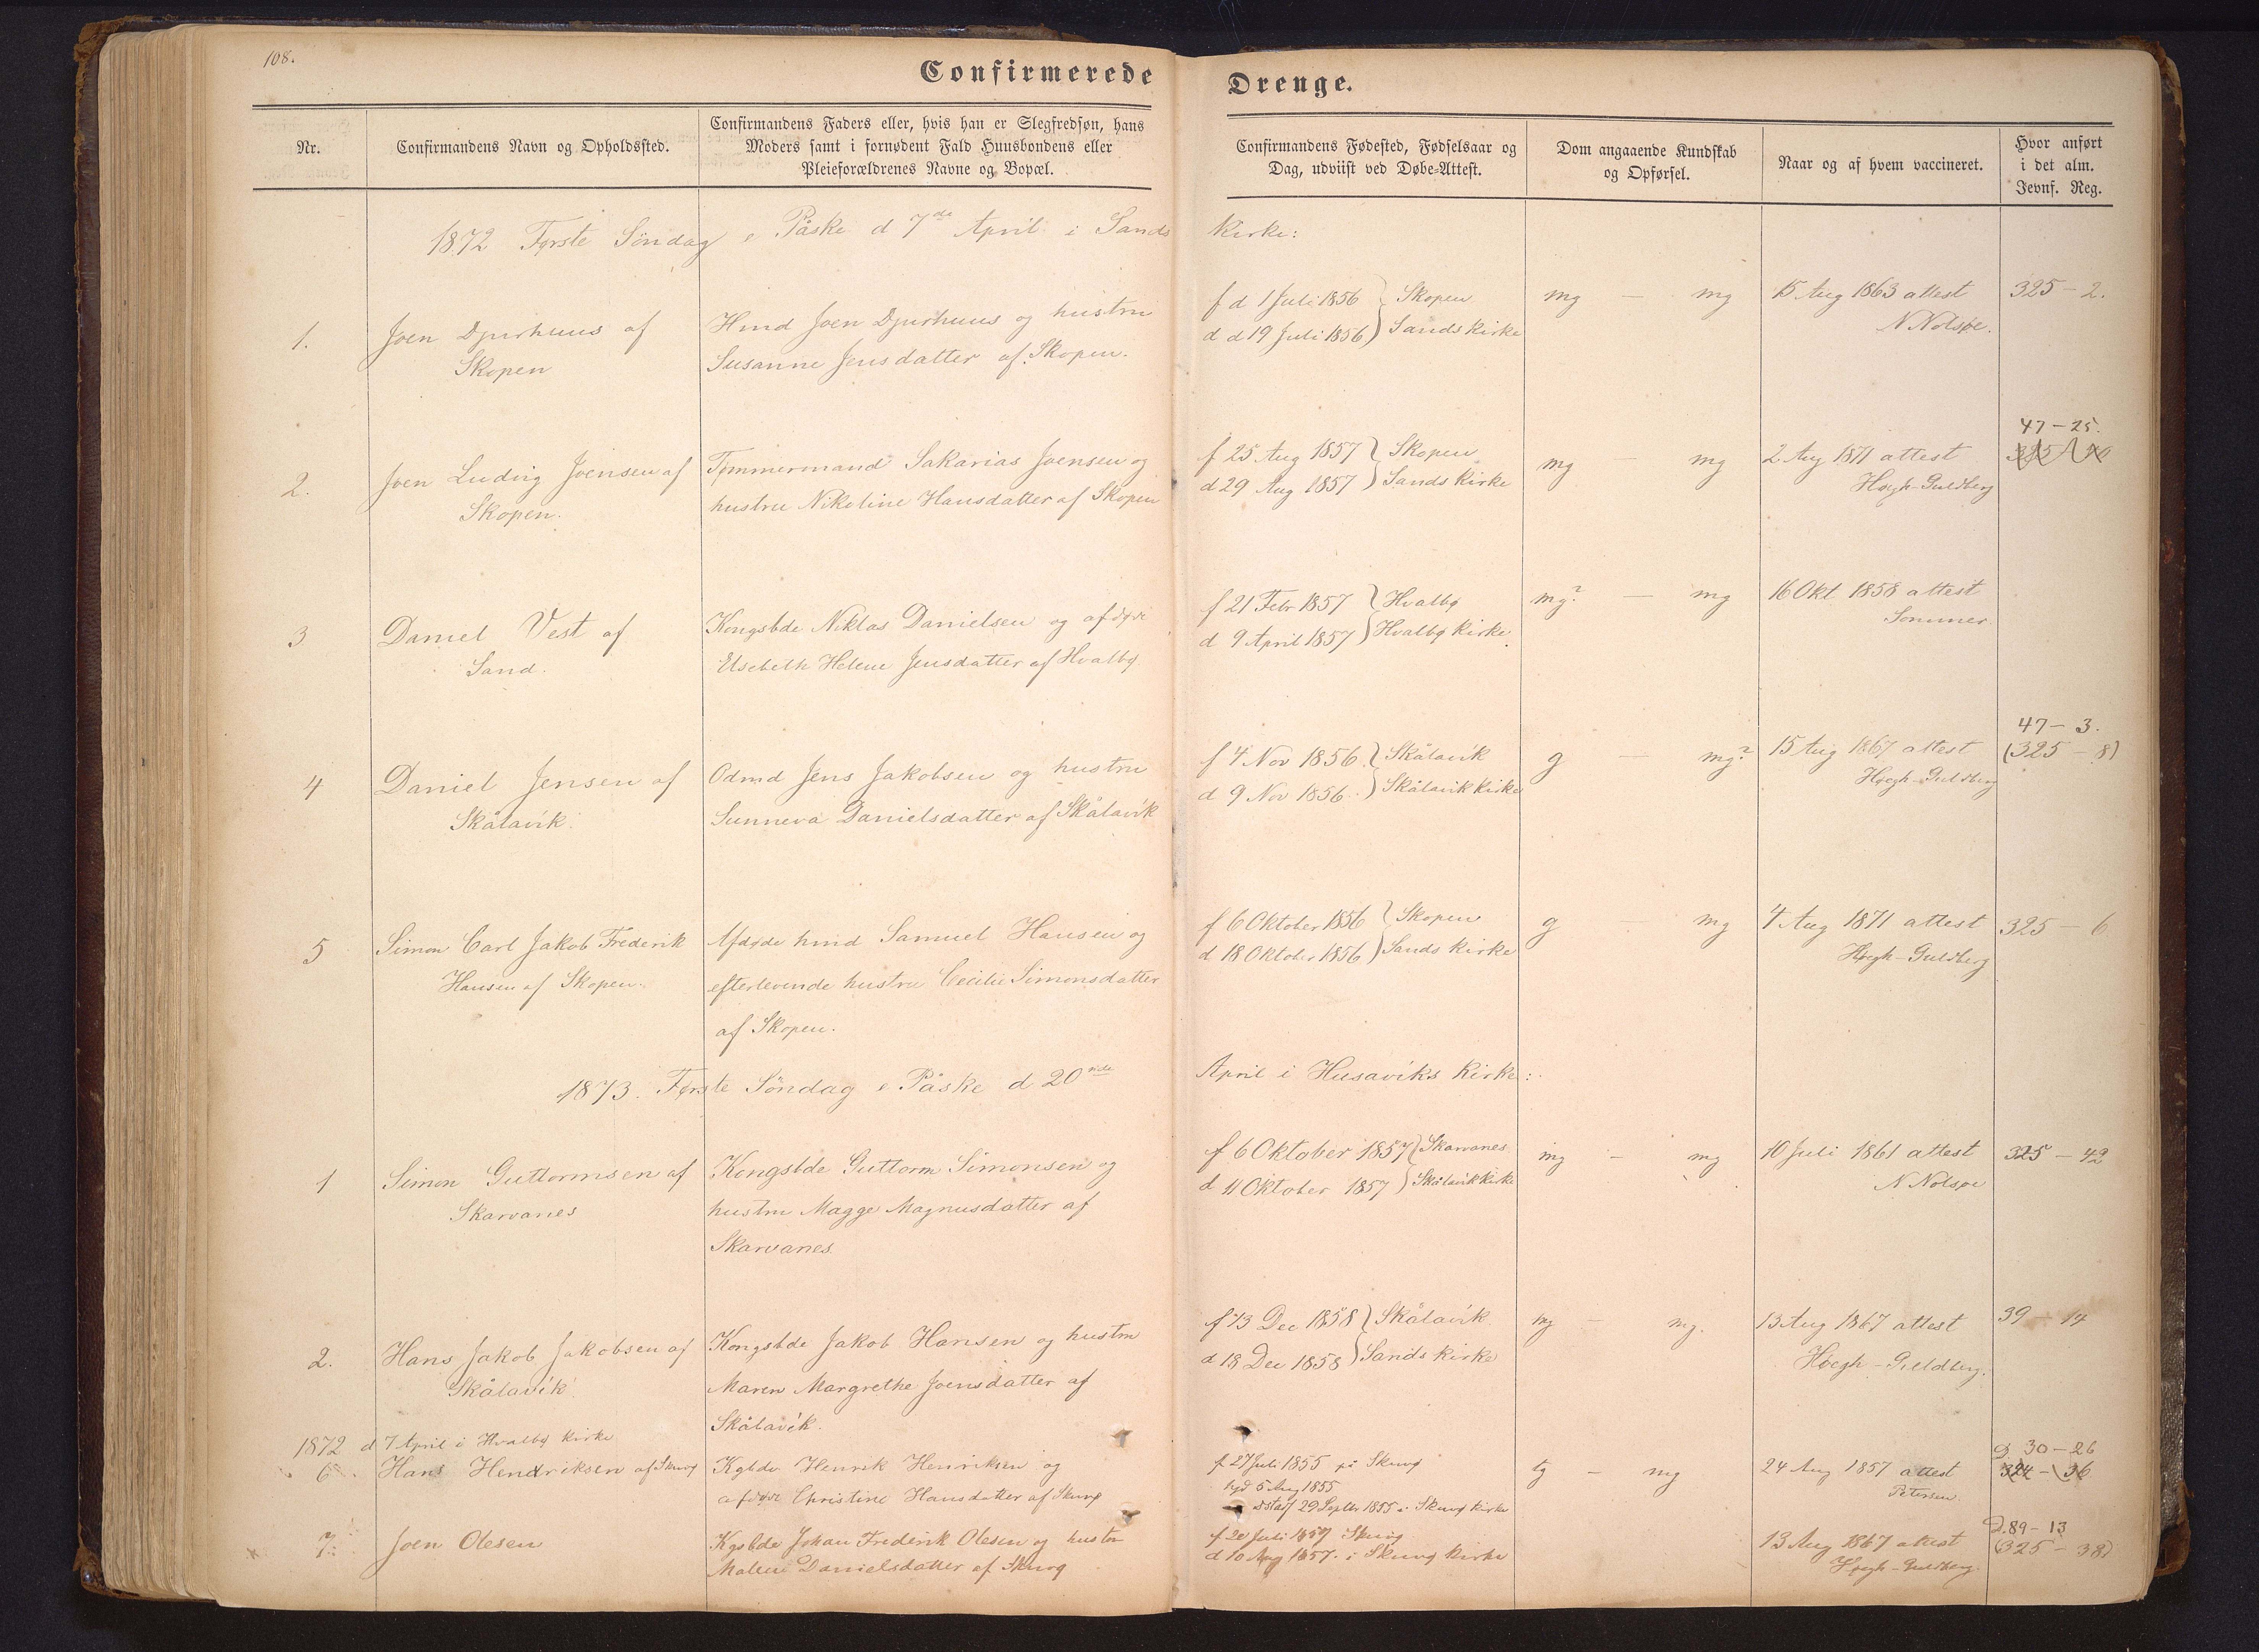 108.
Confirmerede Drenge.
Nr.
Confirmandens Navn og Opholdssted.
Confirmandens Faders eller, hvis han er Slegfredsøn, hans
Moders samt i fornødent Fald Huusbondens eller
Pleieforældrenes Navne og Bopæl.
Confirmandens Fødested, Fødselsaar og
Dag, udviist ved Døbe-Attest.
Dom angaaende Kundskab
og Opførsel.
Naar og af hvem vaccineret.
Hvor anført
i det alm.
Jevnf. Reg.
1872 Første Söndag e Påske d 7de April i Sands Kirke:
1.
Joen Djurhuus af
Skopen
Hmd Joen Djurhuus og hustru
Susanne Jensdatter af Skopen.
f d 1 Juli 1856 } Skopen
d d 19 Juli 1856 } Sands Kirke
mg — mg
15 Aug 1863 attest
N Nolsøe.
325 – 2.
2.
Joen Ludvig Joensen af
Skopen.
Tømmermand Sakarias Joensen og
hustru Nikoline Hansdatter af Skopen
f 25 Aug 1857 } Skopen
d 29 Aug 1857 } Sands Kirke
mg — mg
2 Aug 1871 attest
Høegh-Guldberg
47 – 25.
3
Daniel Vest af
Sand.
Kongsbde Niklas Danielsen og afdøde
Elsebeth Helene Jensdatter af Hvalbø
f 21 Febr 1857 } Hvalbø
d 9 April 1857 } Hvalbø Kirke.
mg? — mg
16 Okt 1858 attest
Sommer.
4
Daniel Jensen af
Skålavík.
Odmd Jens Jakobsen og hustru
Sunneva Danielsdatter af Skålavík
f 4 Nov 1856 } Skålavík
d 9 Nov 1856 } Skålavík Kirke
g — mg?
15 Aug 1867 attest
Høegh-Guldberg
47 – 3.
(325 – 8)
5
Simon Carl Jakob Frederik
Hansen af Skopen.
Afdøde hmd Samuel Hansen og
efterlevende hustru Cecilie Simonsdatter
af Skopen.
f 6 Oktober 1856 } Skopen
d 18 Oktober 1856 } Sands Kirke
g — mg
4 Aug 1871 attest
Høegh-Guldberg
325 – 6
1873. Første Söndag e Påske d 20nde April i Husavíks Kirke:
1
Simon Guttormsen af
Skarvanes
Kongsbde Guttorm Simonsen og
hustru Magge Magnusdatter af
Skarvanes.
f 6 Oktober 1857 } Skarvanes
d 11 Oktober 1857 } Skålavík Kirke
mg – mg
10 Juli 1861 attest
N Nolsøe
325 – 42
2.
Hans Jakob Jakobsen af
Skålavík.
Kongsbde Jakob Hansen og hustru
Maren Margrethe Joensdatter af
Skålavík.
f 13 Dec 1858 } Skålavík
d 18 Dec 1858 } Sands Kirke
mg – mg.
13 Aug 1867 attest
Høegh-Guldberg.
39 – 14
1872 d 7 April i Hvalbø Kirke
6.
Hans Hendriksen af Skuvø
Kgbde Henrik Henriksen og
afdøde Christine Hansdatter af Skuvø
f 27 Juli 1855 på Skuvø
hjd 5 Aug 1855
29 Septbr 1855 i Skuvø Kirke
tg – mg
24 Aug 1857 attest
Petersen.
30 – 26
324 – 36
7.
Joen Olesen
Kgsbde Johan Frederik Olesen og hustru
Malene Danielsdatter af Skuvø
f 20 Juli 1857 Skuvø
d 10 Aug 1857. i Skuvø Kirke
13 Aug 1867 attest
Høegh-Guldberg.
D. 89 – 13
(325 – 38)